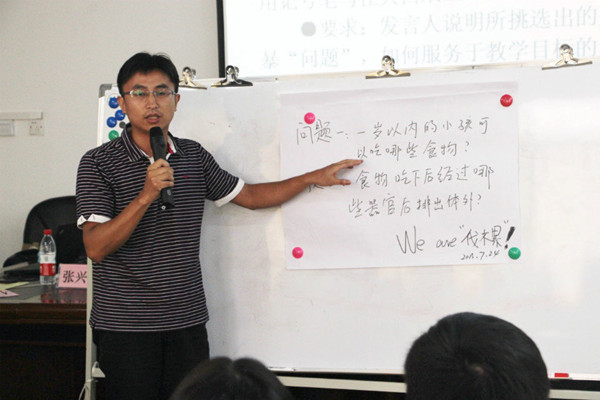 ●要求：发言人说明所挑选出的
“问题”，如何服务于教学目标的
问题一：一岁以内的小孩可
以吃哪些食物？
食物吃下后经过哪
些器官后排出体外？
We are“伐木累”!
张兴